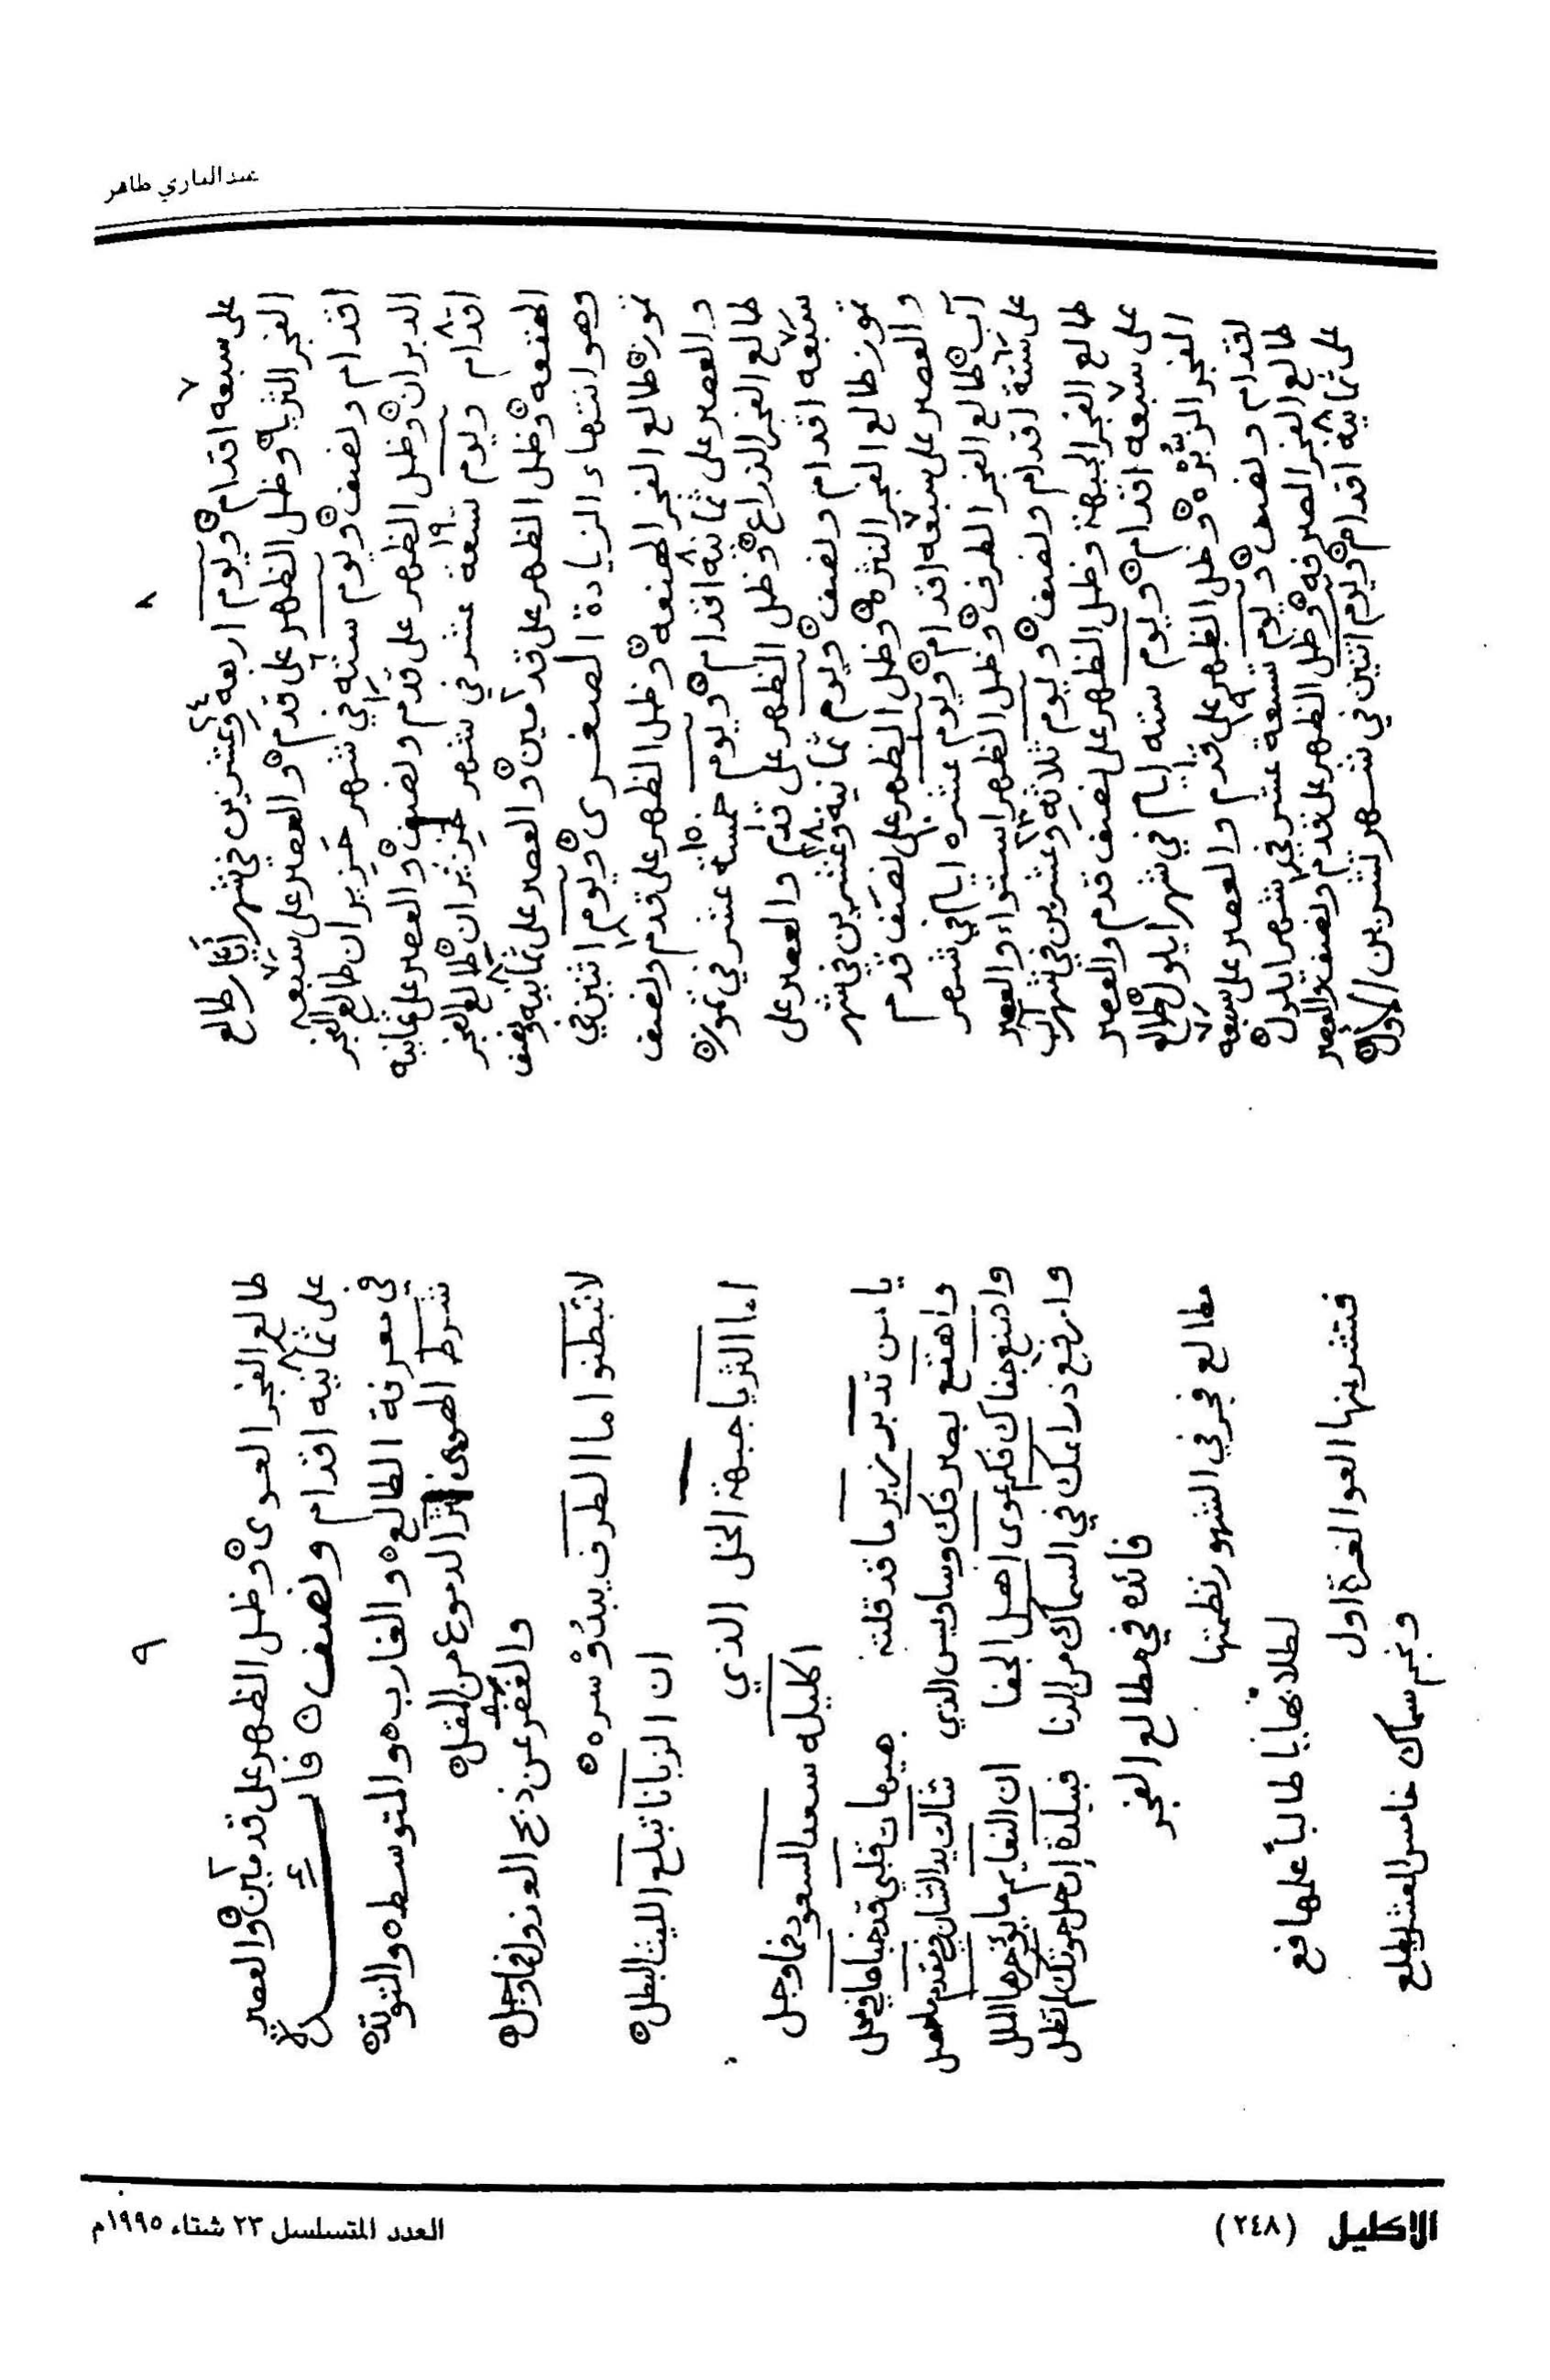 عبدالباري طاهر
٨
على سبعه اقدام ويوم اربعه وعشرين في شهر أيار طالع
٧ ٢٤
الفجر الثريا وظل الظهر على قدم والعصر على سبعه
اقدام ونصف ويوم سته في شهر حزيران طالع الفجر
الدبران وظل الظهر على قدم ونصف والعصر على ثمانيه
اقدام ويوم تسعة عشر في شهر حزيران طالع الفجر
الهقعه وظل الظهر على قدمين والعصر على ثمانيه ونصف
وهو انتهاء الزيادة الصغرى ويوم اثنين في
تموز طالع الفجر الهنعه وظل الظهر على قدم ونصف
والعصر على ثمانيه اقدام ويوم خمسه عشر في تموز
طالع الفجر الذراع وظل الظهر على قدم والعصر على
سبعه اقدام ونصف ويوم ثمانيه وعشرين في شهر
تموز طالع الفجر النثره وظل الظهر على نصف قدم
والعصر على سبعه اقدام ويوم عشره ايام في شهر
آب طالع الفجر الطرف وظل الظهر استواء والعصر
على ستة اقدام ونصف ويوم ثلاثه وعشرين في شهر آب
طالع الفجر الجبهة وظل الظهر على نصف قدم والعصر
على سبعه اقدام ويوم سته ايام في شهر ايلول طالع
الفجر الزبره وظل الظهر على قدم والعصر على سبعه
اقدام ونصف ويوم تسعة عشر في شهر ايلول
طالع الفجر الصرفه وظل الظهر على قدم ونصف والعصر
على ثمانيه اقدام ويوم اثنين في شهر تشرين الاول
٩
طالع الفجر العوى وظل الظهر على قدمين والعصر
على ثمانيه اقدام ونصف فايده
في معرفة الطالع والغارب والمتوسط والتوتد
شرط الهوى نثر الدموع من المقل
والغفر عن ذبح العذول
لا تبطنوا اما الطرف يبدو سره
ان الزبانا تبلع الليث البطل
اما الثريا جبهة الخل الذي
اكليله سعد السعود فما وجل
يا من تدبر زبر ما قد قلته
هيهات قلبي قد خباها في محل
واهقع بصرفك وساويس الذي
ثالث يد الشان في مقدم
واهنع جفاك فكم عوى اهل الجفا
ان النعايم ما يؤخرها الملل
وارجع ذراعك في السماك من الرنا
فبلدة إن حل حوتك لم تطل
فائده في مطالع الفجر
مطالع فجر في الشهور نظمتها
لطلابها يا طالباً علمها فع
فتشرينها العوا لغرة اول
ونجم سماك خامس العشر يطلع
الاكليل (٢٤٨)
العدد المتسلسل ٢٣ شتاء ١٩٩٥م